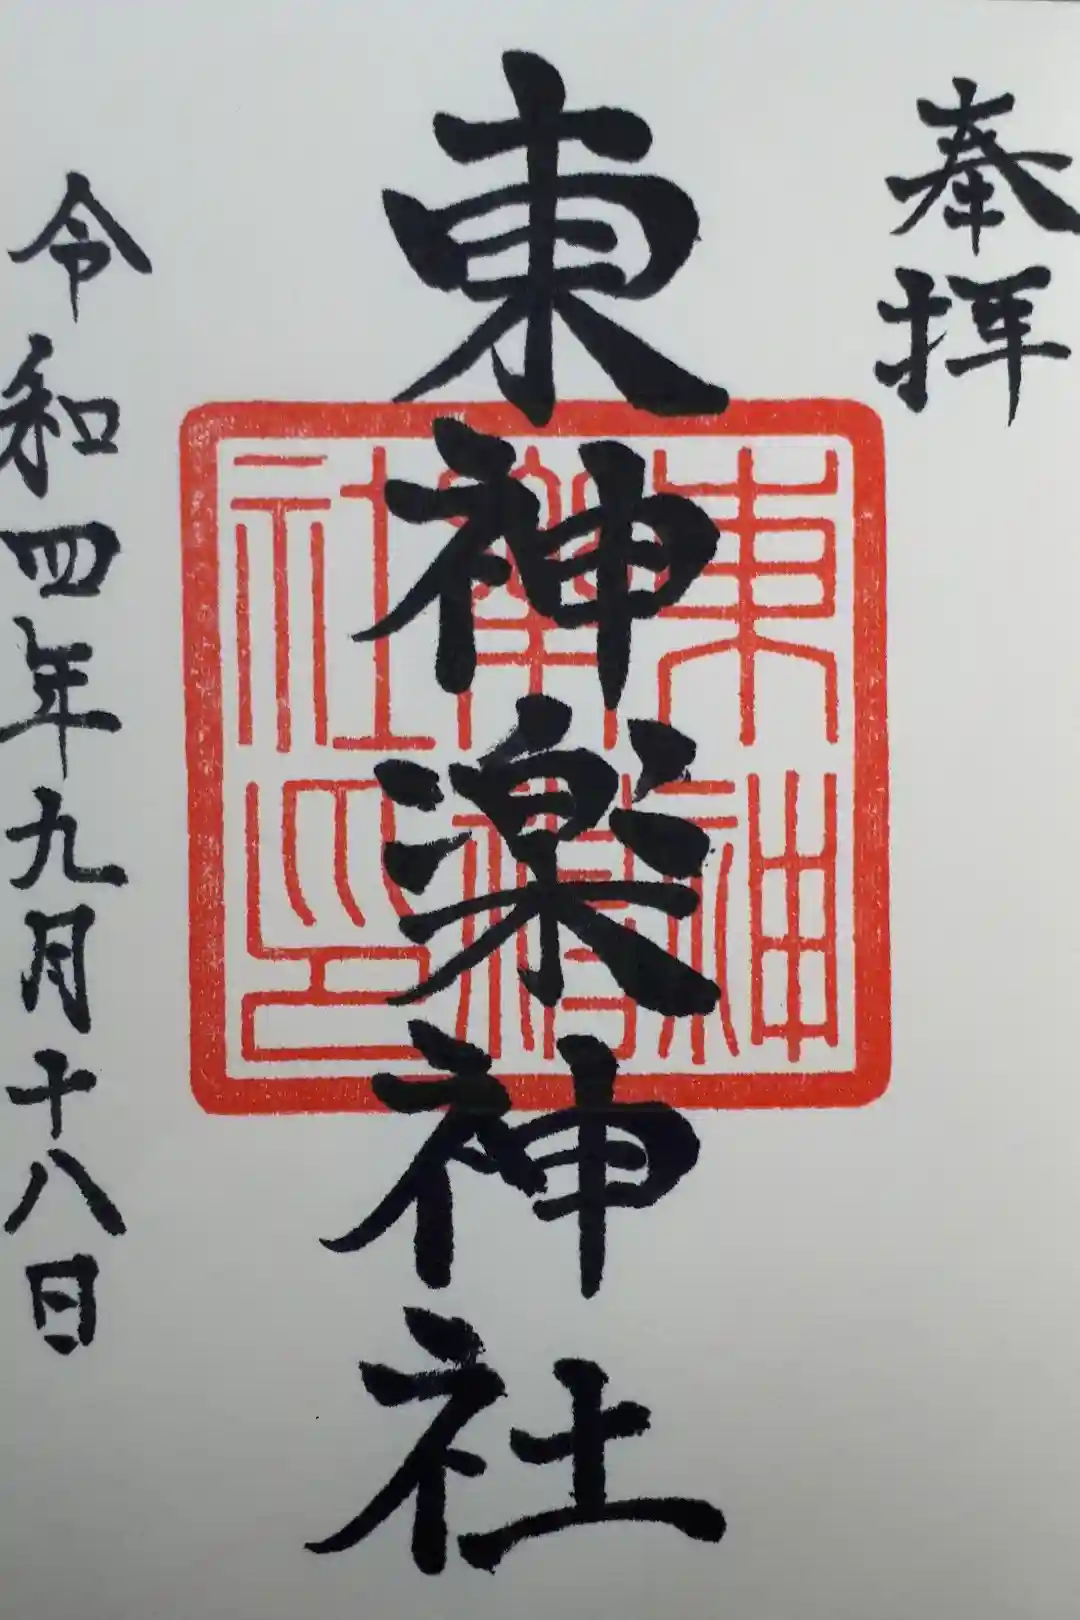 奉拝
東神楽神社
東神樂神社印
令和四年九月十八日